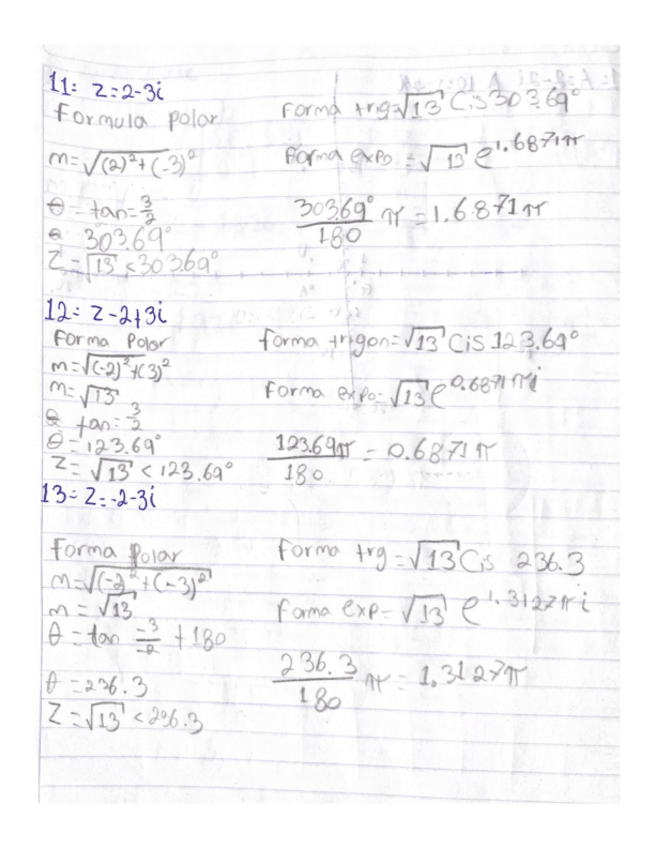 11: Z=2-3i
Formula polar
m=√(2)²+(-3)²
θ = tan= 3/2
θ 303.69°
Z=√13 <303.69°
Forma trig=√13 Cis 303.69°
Forma expo = √13 e^1.6871π
303.69°/180 π = 1.6871π
12: Z-2+3i
Forma Polar
m=√(-2)²+(3)²
m=√13
θ tan= 3/2
θ=123.69°
Z= √13 < 123.69°
forma trigon=√13 Cis 123.69°
Forma expo=√13 e^0.6871πi
123.69π/180 = 0.6871π
13: Z=-2-3i
Forma Polar
m=√(-2²+(-3)²
m = √13
θ = tan -3/-2 +180
θ =236.3
Z=√13 <236.3
Forma trg =√13 Cis 236.3
Forma exp=√13 e^1.3127πi
236.3/180 π= 1.3127π